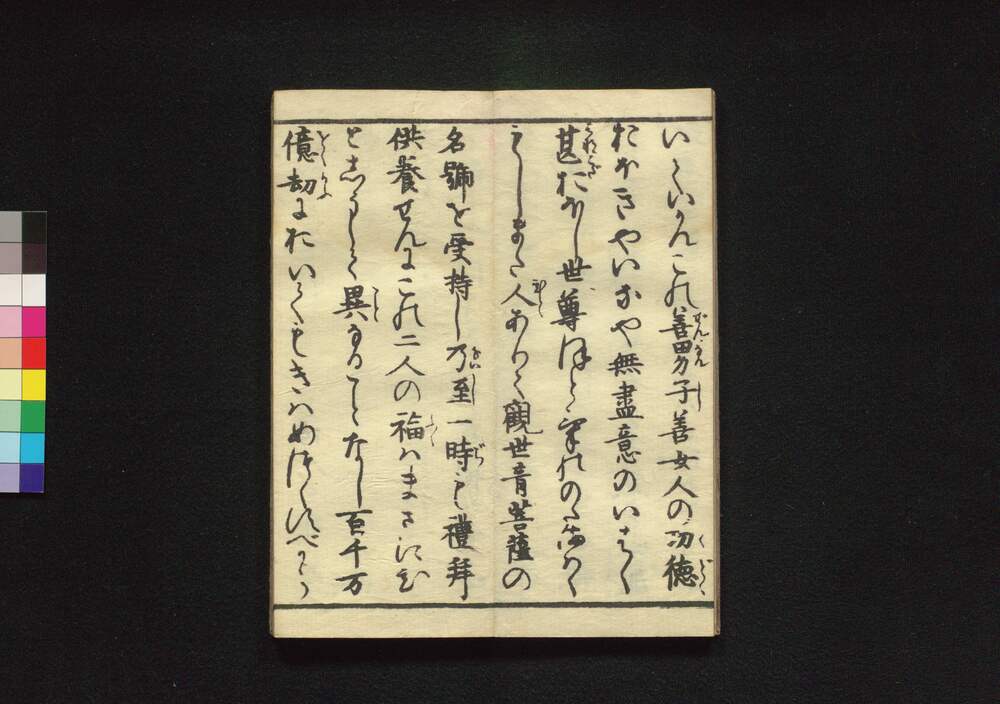 いかんこれ善男子善女人の功徳
おほきやいなや無盡意のいはく
甚おほし世尊ほとけののたまはく
もしまた人ありて觀世音菩薩の
名號を受持し乃至一時も禮拜
供養せんにこの二人の福はまさにひ
としうして異なることなし百千万
億劫においてもきはめつくすべから